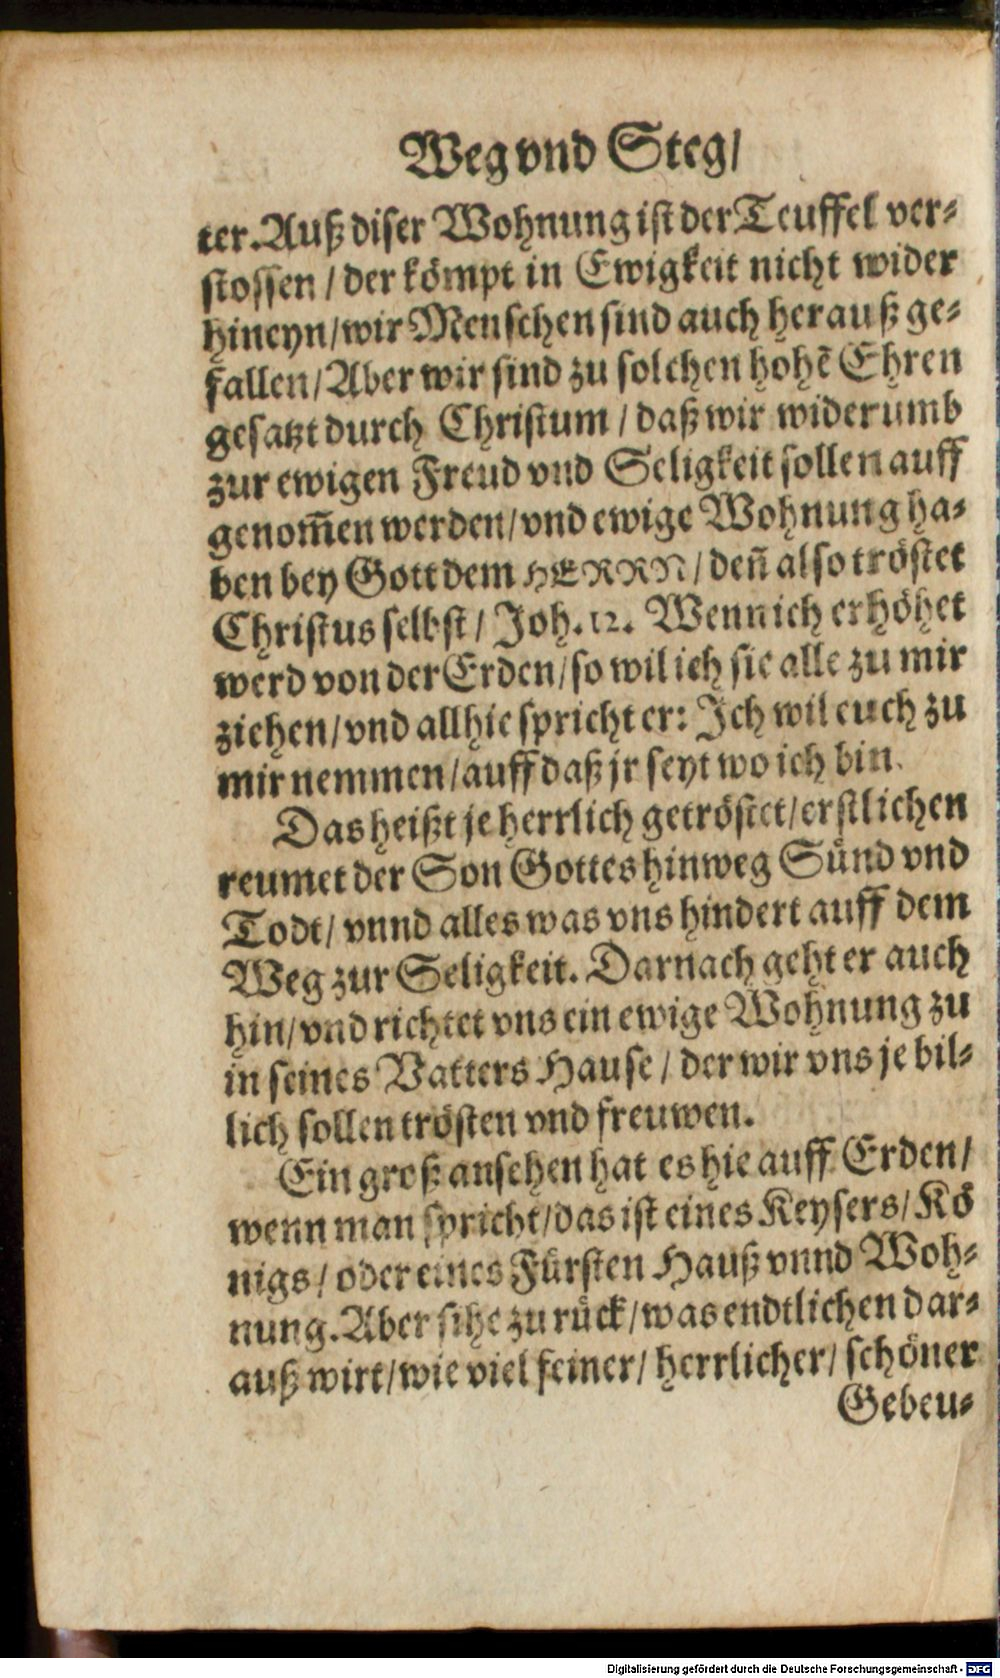 Weg vnd Steg/
ter. Auß diser Wohnung ist der Teuffel ver-
stossen / der kömpt in Ewigkeit nicht wider
hineyn/wir Menschen sind auch herauß ge-
fallen/Aber wir sind zu solchen hohē Ehren
gesatzt durch Christum / daß wir widerumb
zur ewigen Freud vnd Seligkeit sollen auff
genom̄en werden/vnd ewige Wohnung ha-
ben bey Gott dem HERRN/ den̄ also tröstet
Christus selbst/ Joh. 12. Wenn ich erhöhet
werd von der Erden/so wil ich sie alle zu mir
ziehen/vnd allhie spricht er: Ich wil euch zu
mir nemmen/auff daß jr seyt wo ich bin.
Das heißt je herrlich getröstet/erstlichen
reumet der Son Gottes hinweg Sünd vnd
Todt/ vnnd alles was vns hindert auff dem
Weg zur Seligkeit. Darnach geht er auch
hin/vnd richtet vns ein ewige Wohnung zu
in seines Vatters Hause / der wir vns je bil-
lich sollen trösten vnd freuwen.
Ein groß ansehen hat es hie auff Erden/
wenn man spricht/das ist eines Keysers/Kö
nigs / oder eines Fürsten Hauß vnnd Woh-
nung. Aber sihe zu rück/was endtlichen dar-
auß wirt/wie viel feiner/ herrlicher/ schöner
Gebeu-
Digitalisierung gefördert durch die Deutsche Forschungsgemeinschaft - DFG